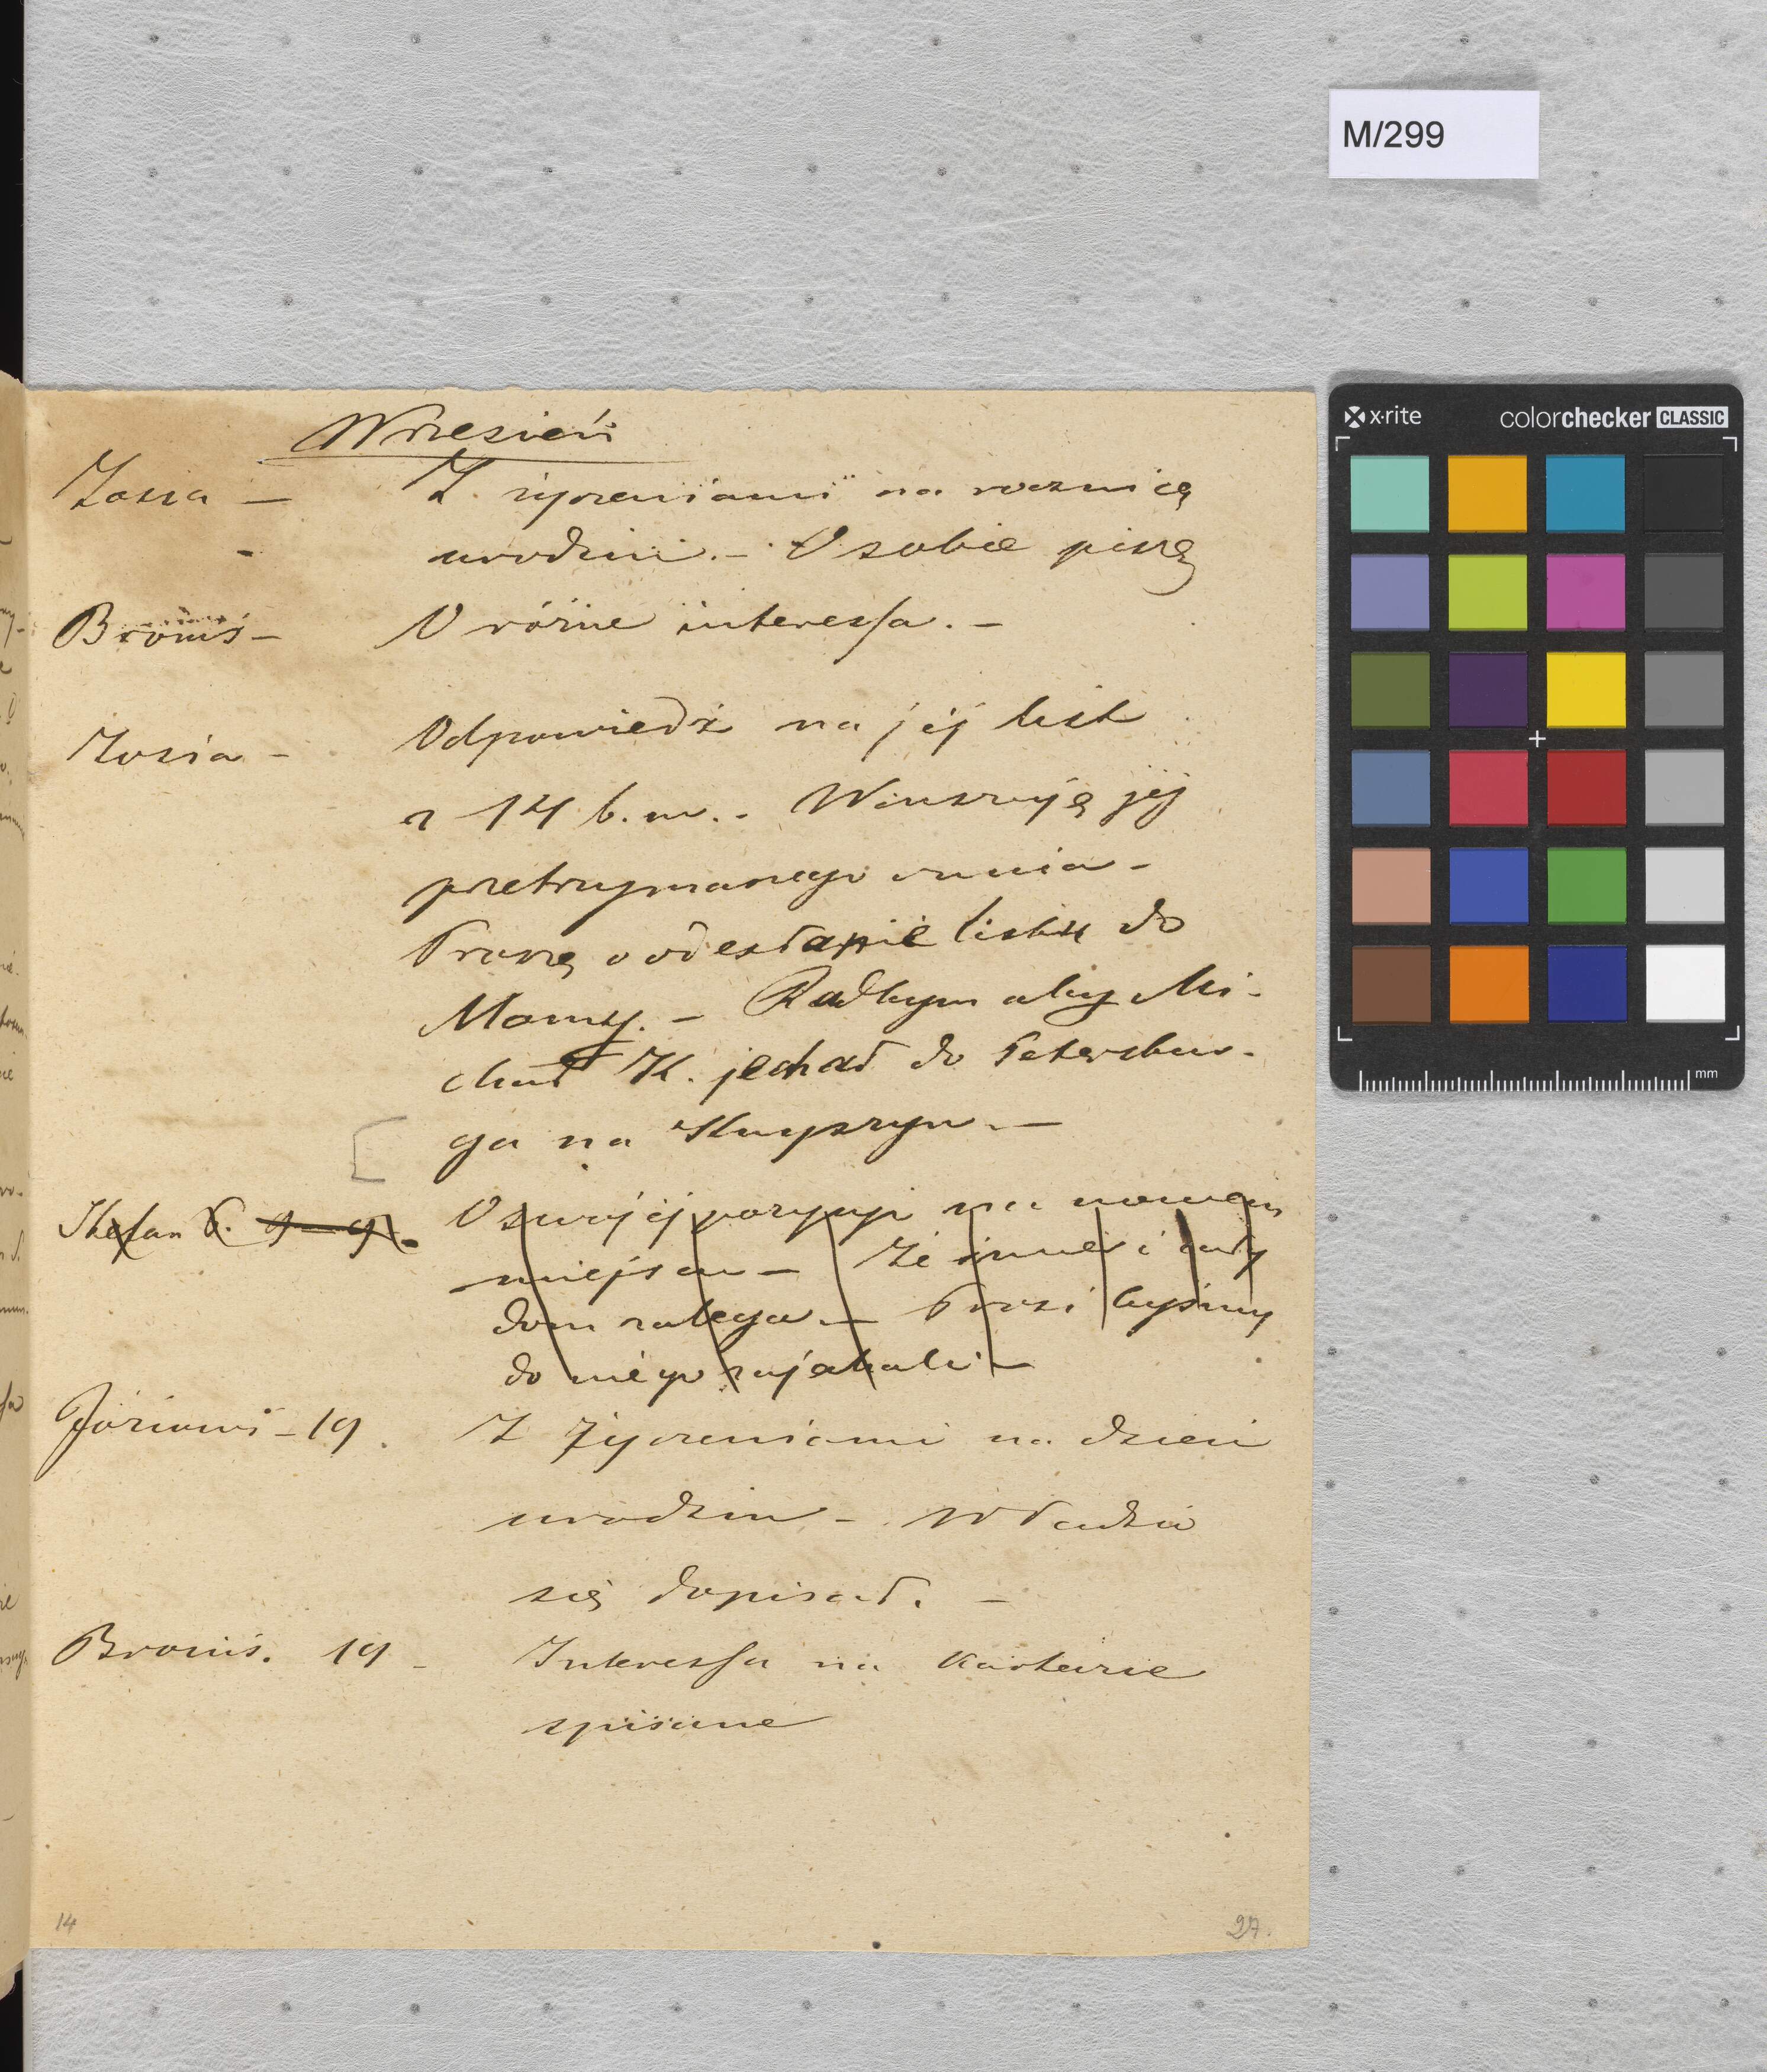 M/299
x-rite colorchecker CLASSIC
mm
Wrzesień
Zosia — Z życzeniami na rocznicę
urodzin. — O sobie piszę
Broniś — O różne interessa. —
Zosia — Odpowiedź na jej list
z 14 b. m. . Winszuję jej
przetrzymanego
Proszę o odesłanie listu do
Mamy. — Radbym aby Mi-
chał K. jechał do Petersbur-
ga na Knyszyn. —
Stefan O swojej pozycyi na nowem
miejscu — Że inne i cały
dom zalega. — Prosi byśmy
do niego zajechali —
Józiowi — 19. Z życzeniami na dzień
urodzin — Władzio
się dopisał. —
Broniś. 19 — Interessa na karterze
spisane
14
27.